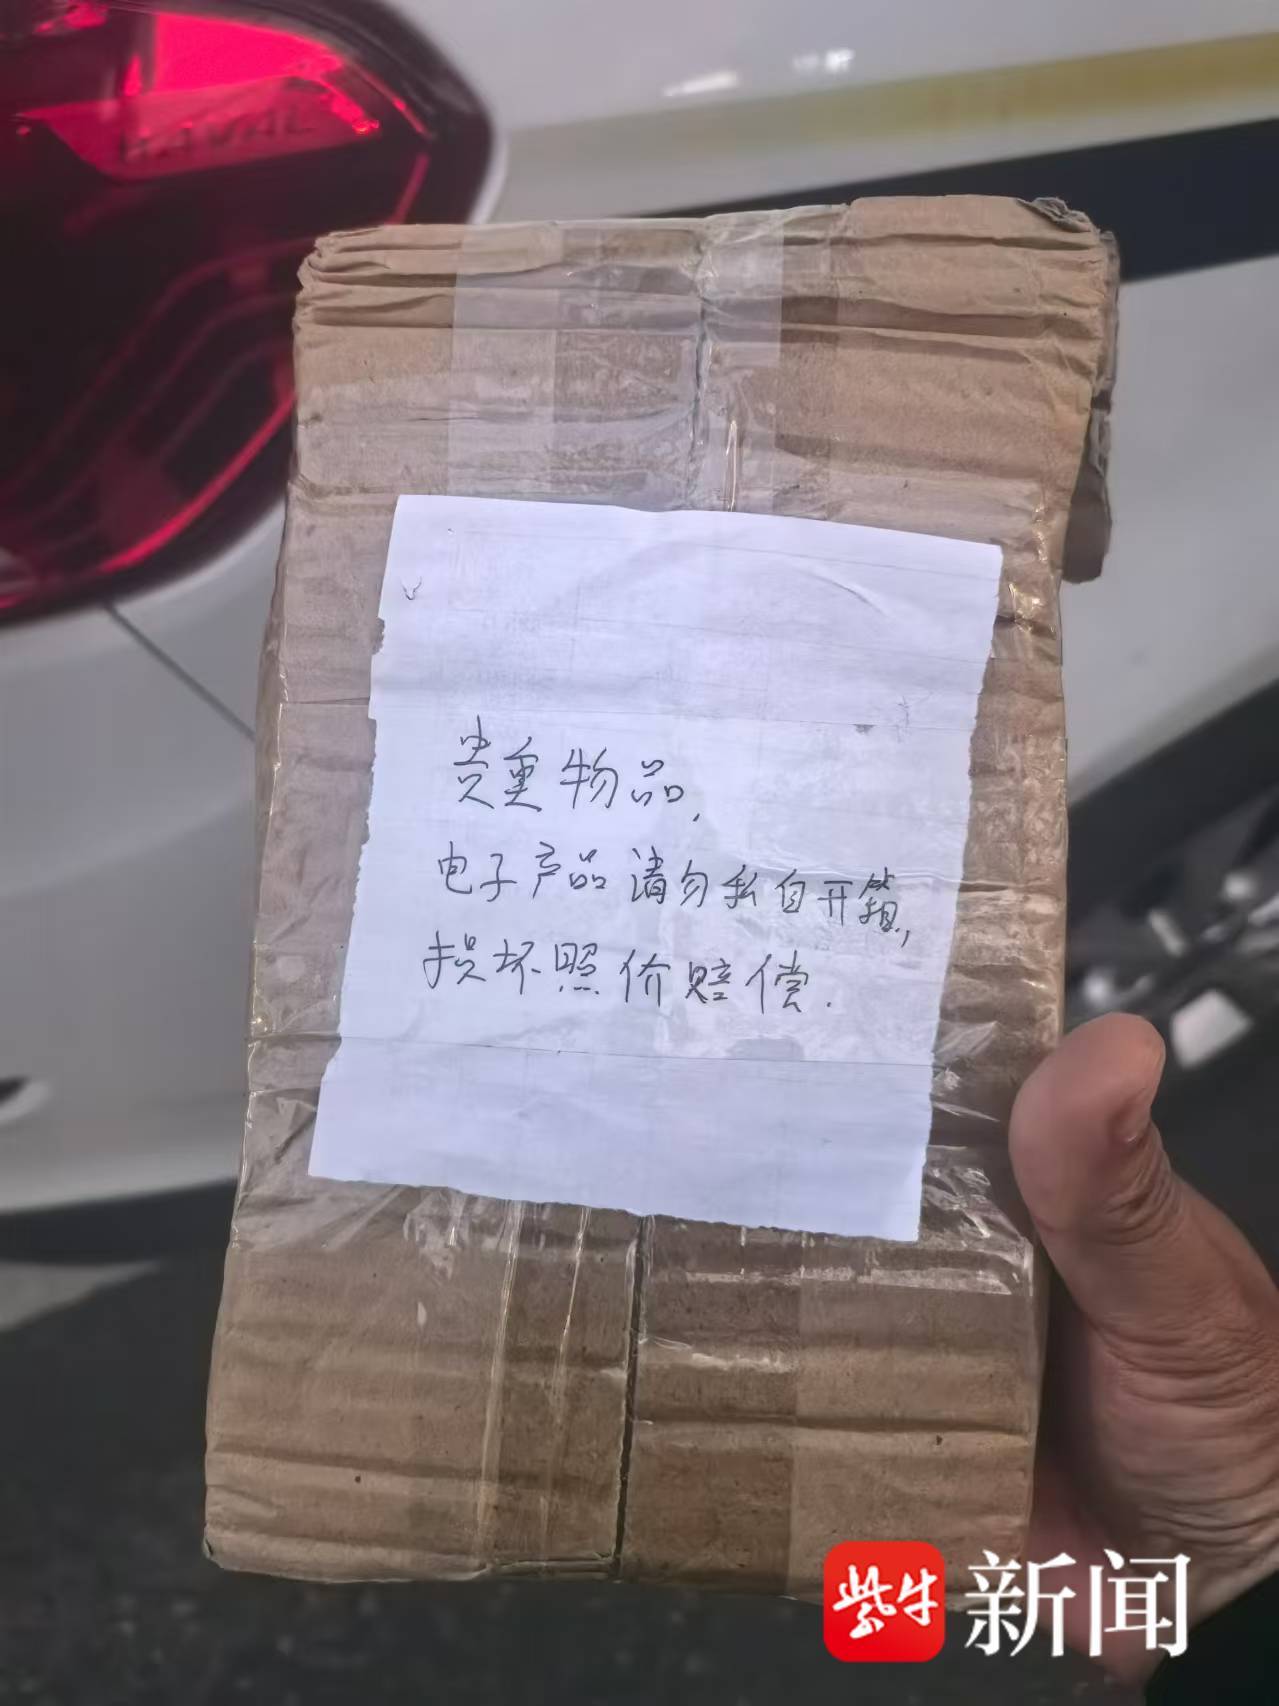 HAVAL
贵重物品,
电子产品请勿私自开箱,
损坏照价赔偿.
紫牛 新闻